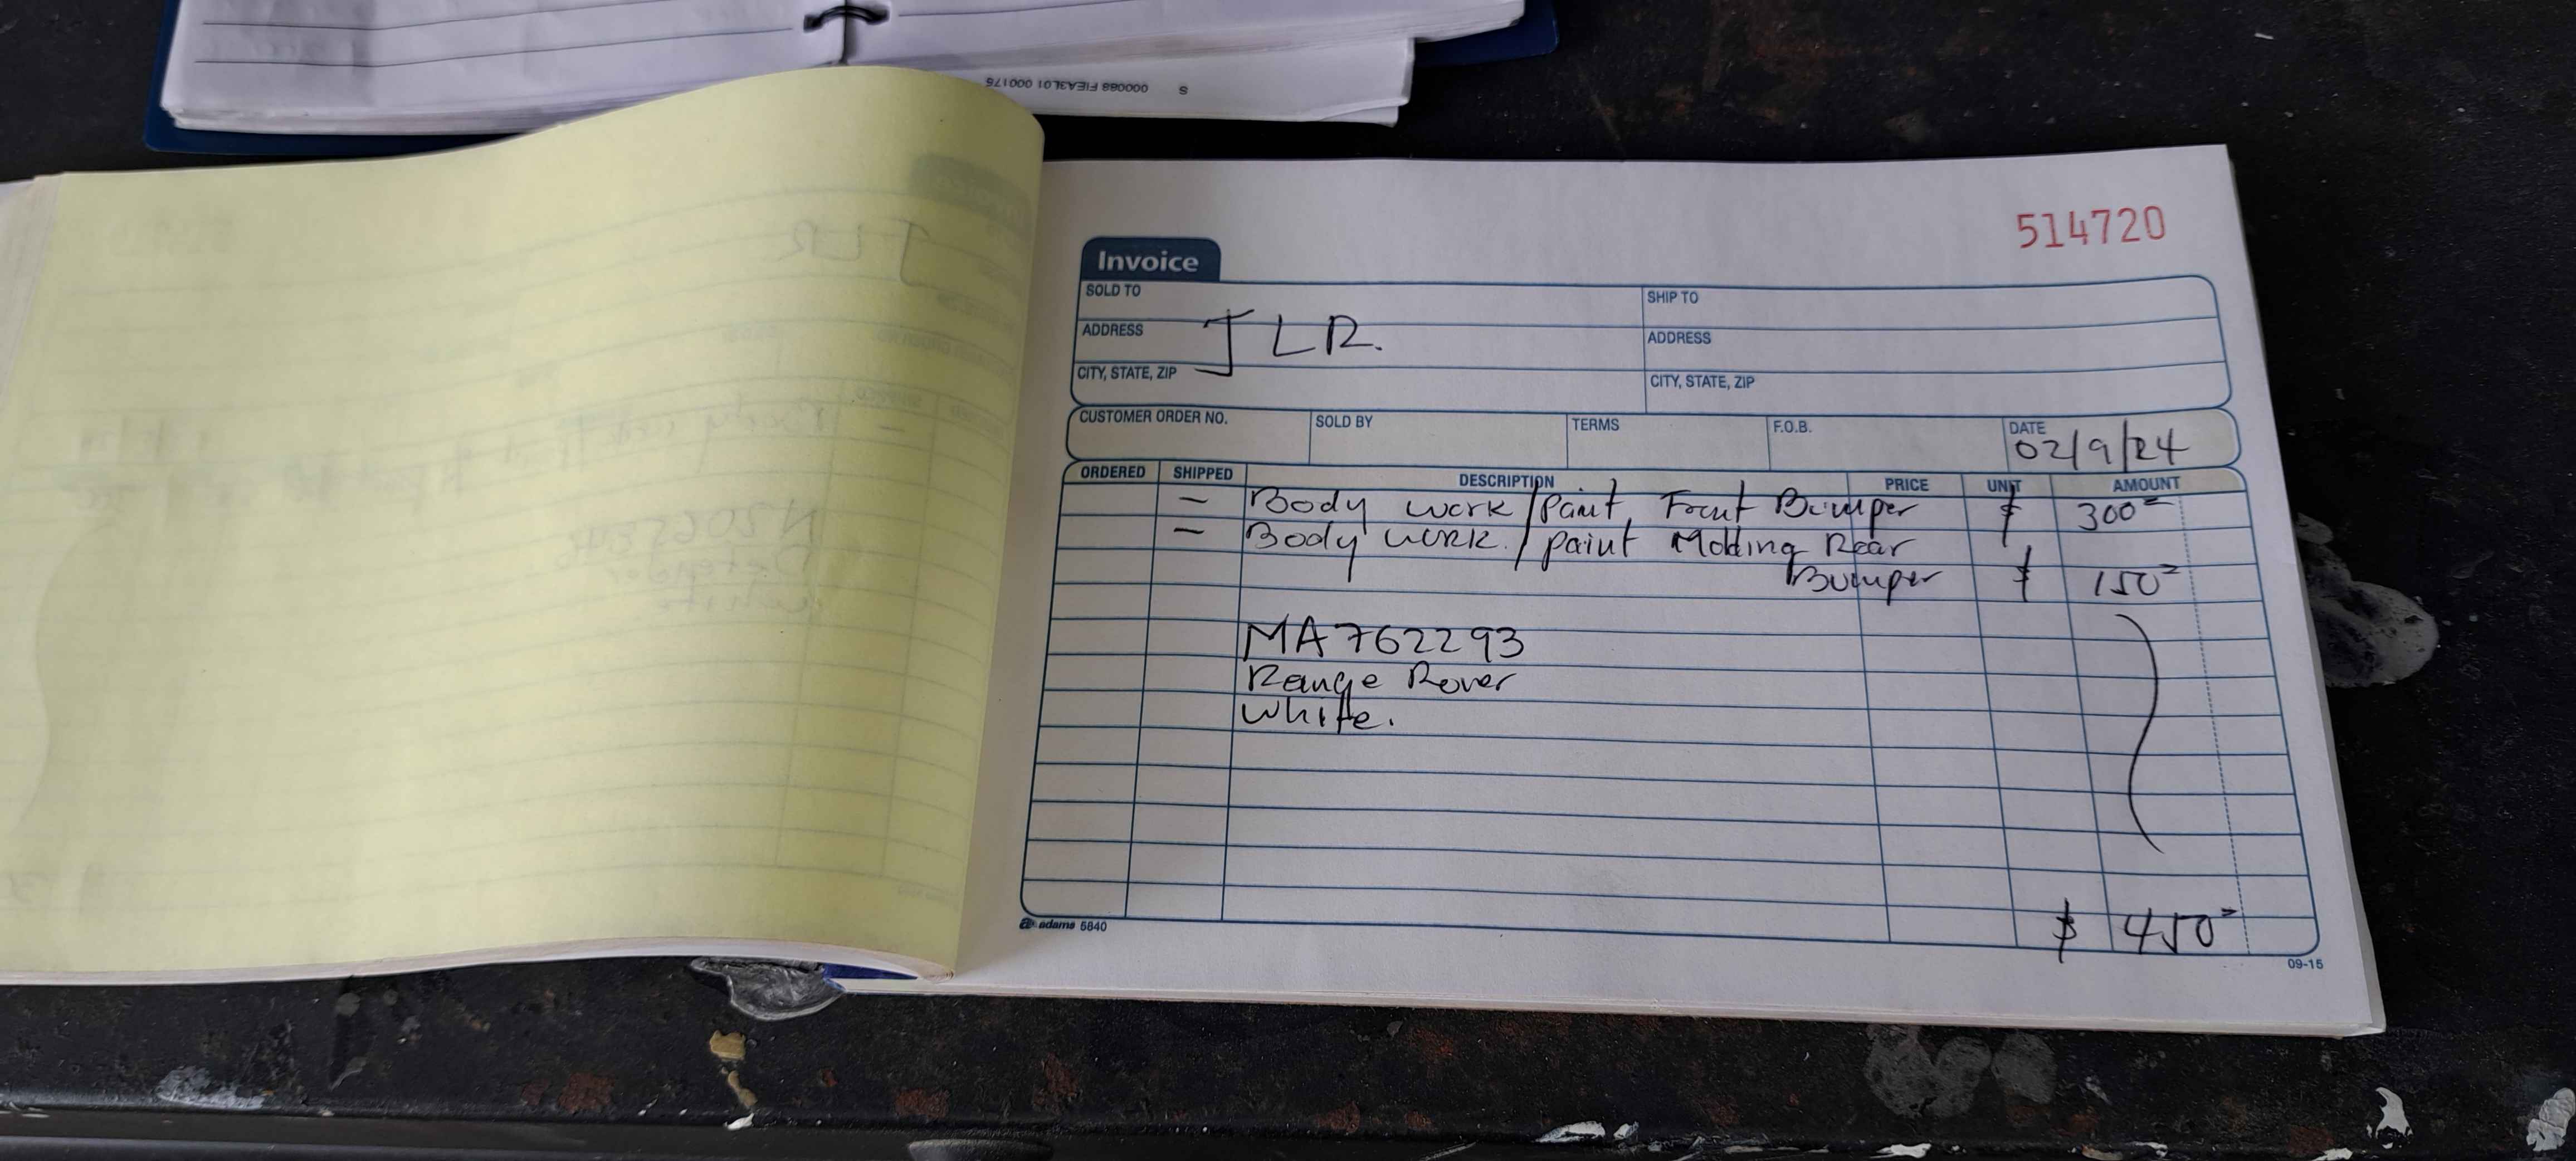 000088 FIEA3L01 000175 S
514720
Invoice
SOLD TO
SHIP TO
JLR.
ADDRESS
ADDRESS
CITY, STATE, ZIP
CITY, STATE, ZIP
CUSTOMER ORDER NO. SOLD BY TERMS F.O.B. DATE
02/9/24
ORDERED SHIPPED DESCRIPTION PRICE UNIT AMOUNT
- Body work/paint Front Bumper $ 300=
- Body work/paint Molding Rear
Bumper $ 150=
MA762293
Range Rover
white.
$ 450=
adams 5840
09-15